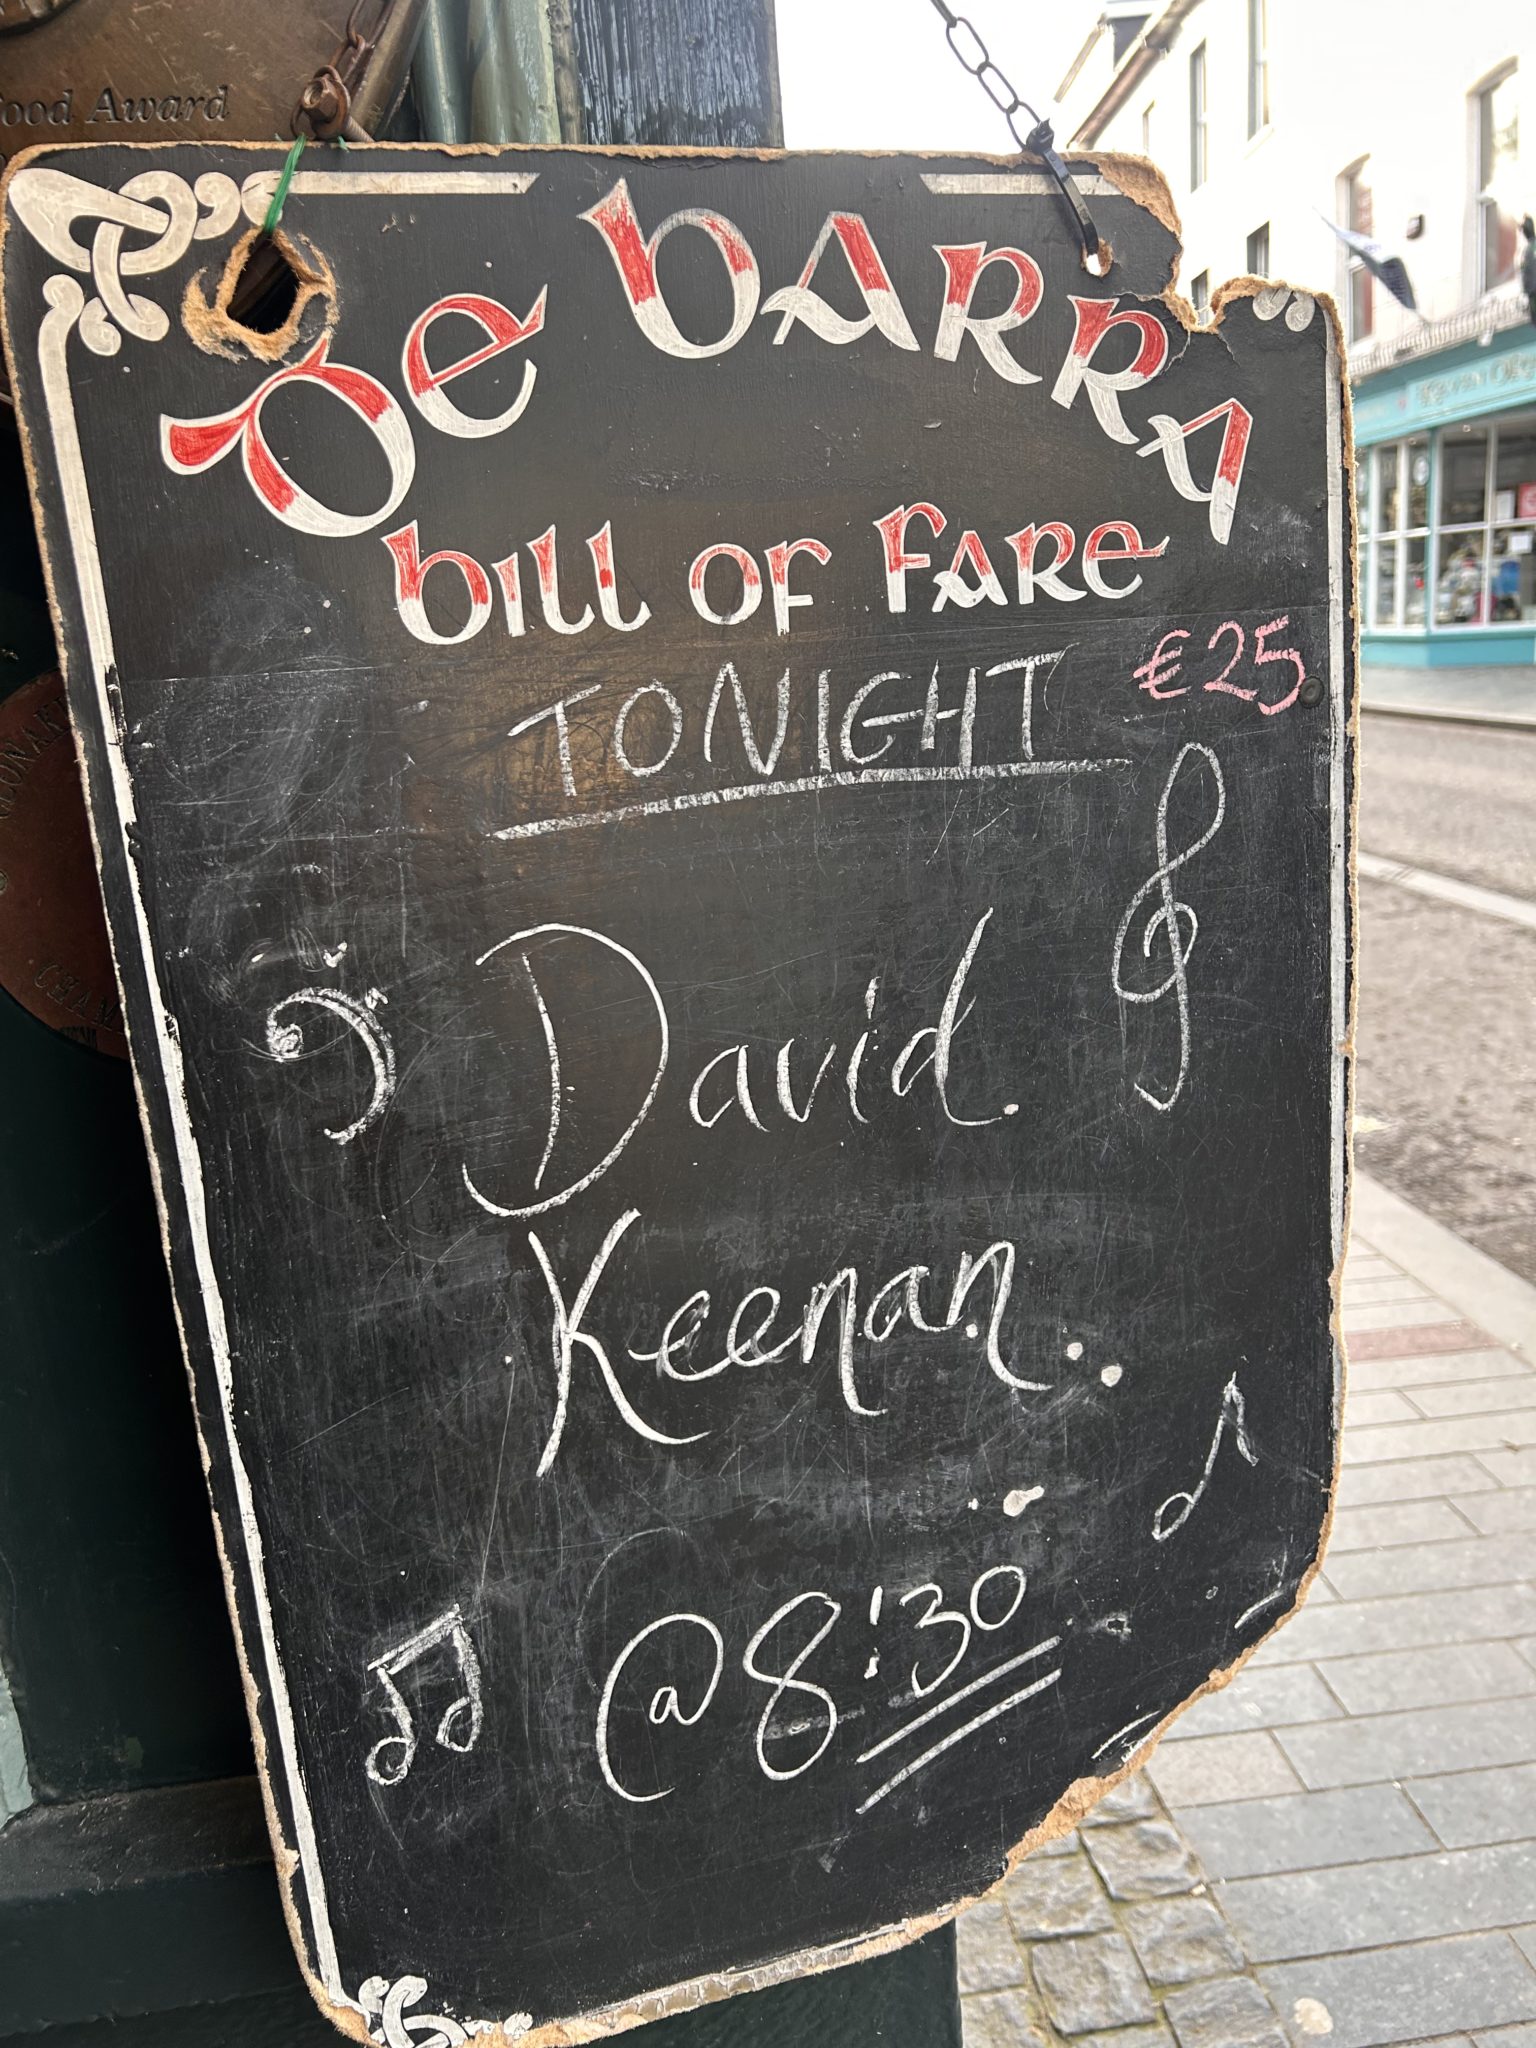 ood Award
De BARRA
bill of fare
TONIGHT
€25
David
Keenan..
@8:30